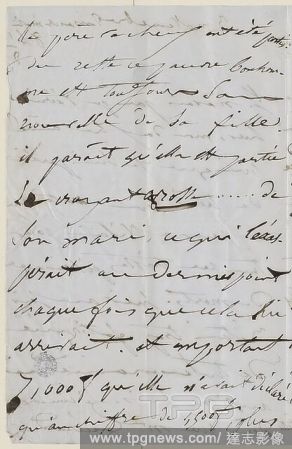 le pere rocher ont été partis
du reste ce pauvre bonhom-
me est toujours sa
nouvelle de sa fille.
il paraît qu'elle est partie
se croyant grosse ..... de
son mari, ce qui l'exas-
pérait au dernier point
chaque fois que cela lui
arrivait. et emportant
71000f qu'elle n'avait déclaré
qu'au chiffre de 1500f. plus
TPG
www.tpgnews.com / 達志影像